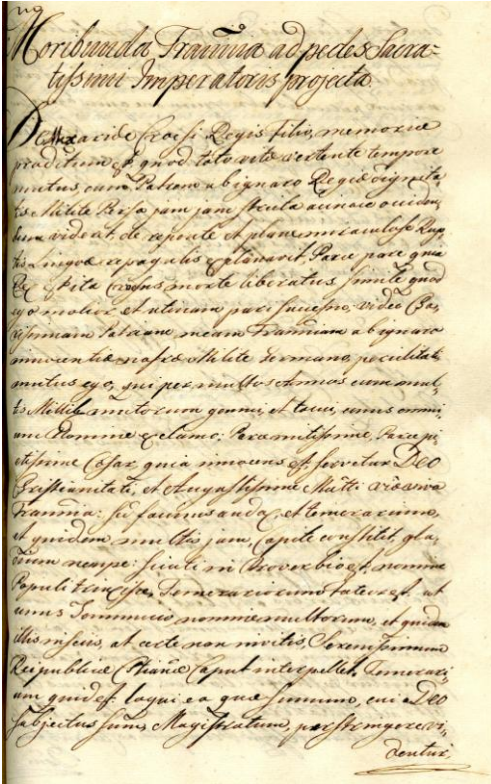 Moribunda Transilvania ad pedes Sacra-
tissimi Imperatoris projecta.
De Croesi Regis filio, memoriae
proditum est, quod toto vitae vertente tempore
mutus, cum Patrem ab ignaro Regiae dignita-
tis Milite Persa jam jam
videat, de repente et plane miraculose Rup-
tis Linguae repagulis exclamavit, Parce parce quia
Rex est, ita Croesus morte liberatus, simile quid
ego molior, et utinam pari successu, video Ca-
rissimam Patriam meam Tranniam ab ignaro
innocentiae nostrae Milite Germano,
mutus ego, qui per multos Annos cum mul-
tis Millibus mutorum gemui, et tacui, unus omni-
um Nomine exclamo; Parce mitissime, Parce pi-
etissime Caesar, quia innocens est, servitur Deo
Christianitati, et Augustissimae Matti
Trannia: sed facinus audax, et temerarium,
et quidem multis jam, Capite constitit, gla-
dium nempe: sicuti in Proverbio est, nomine
Populi Temerarium fateor est, ut
unus nomine multorum, et quidem
illis insciis, at certe non invitis, Serenissimum
Reipublicae Chianae Caput interpellet, Temerari-
um quid est loqui ea quae summum, cui a Deo
subjectus sum, Magistratum, perstringere vi-
dentur,